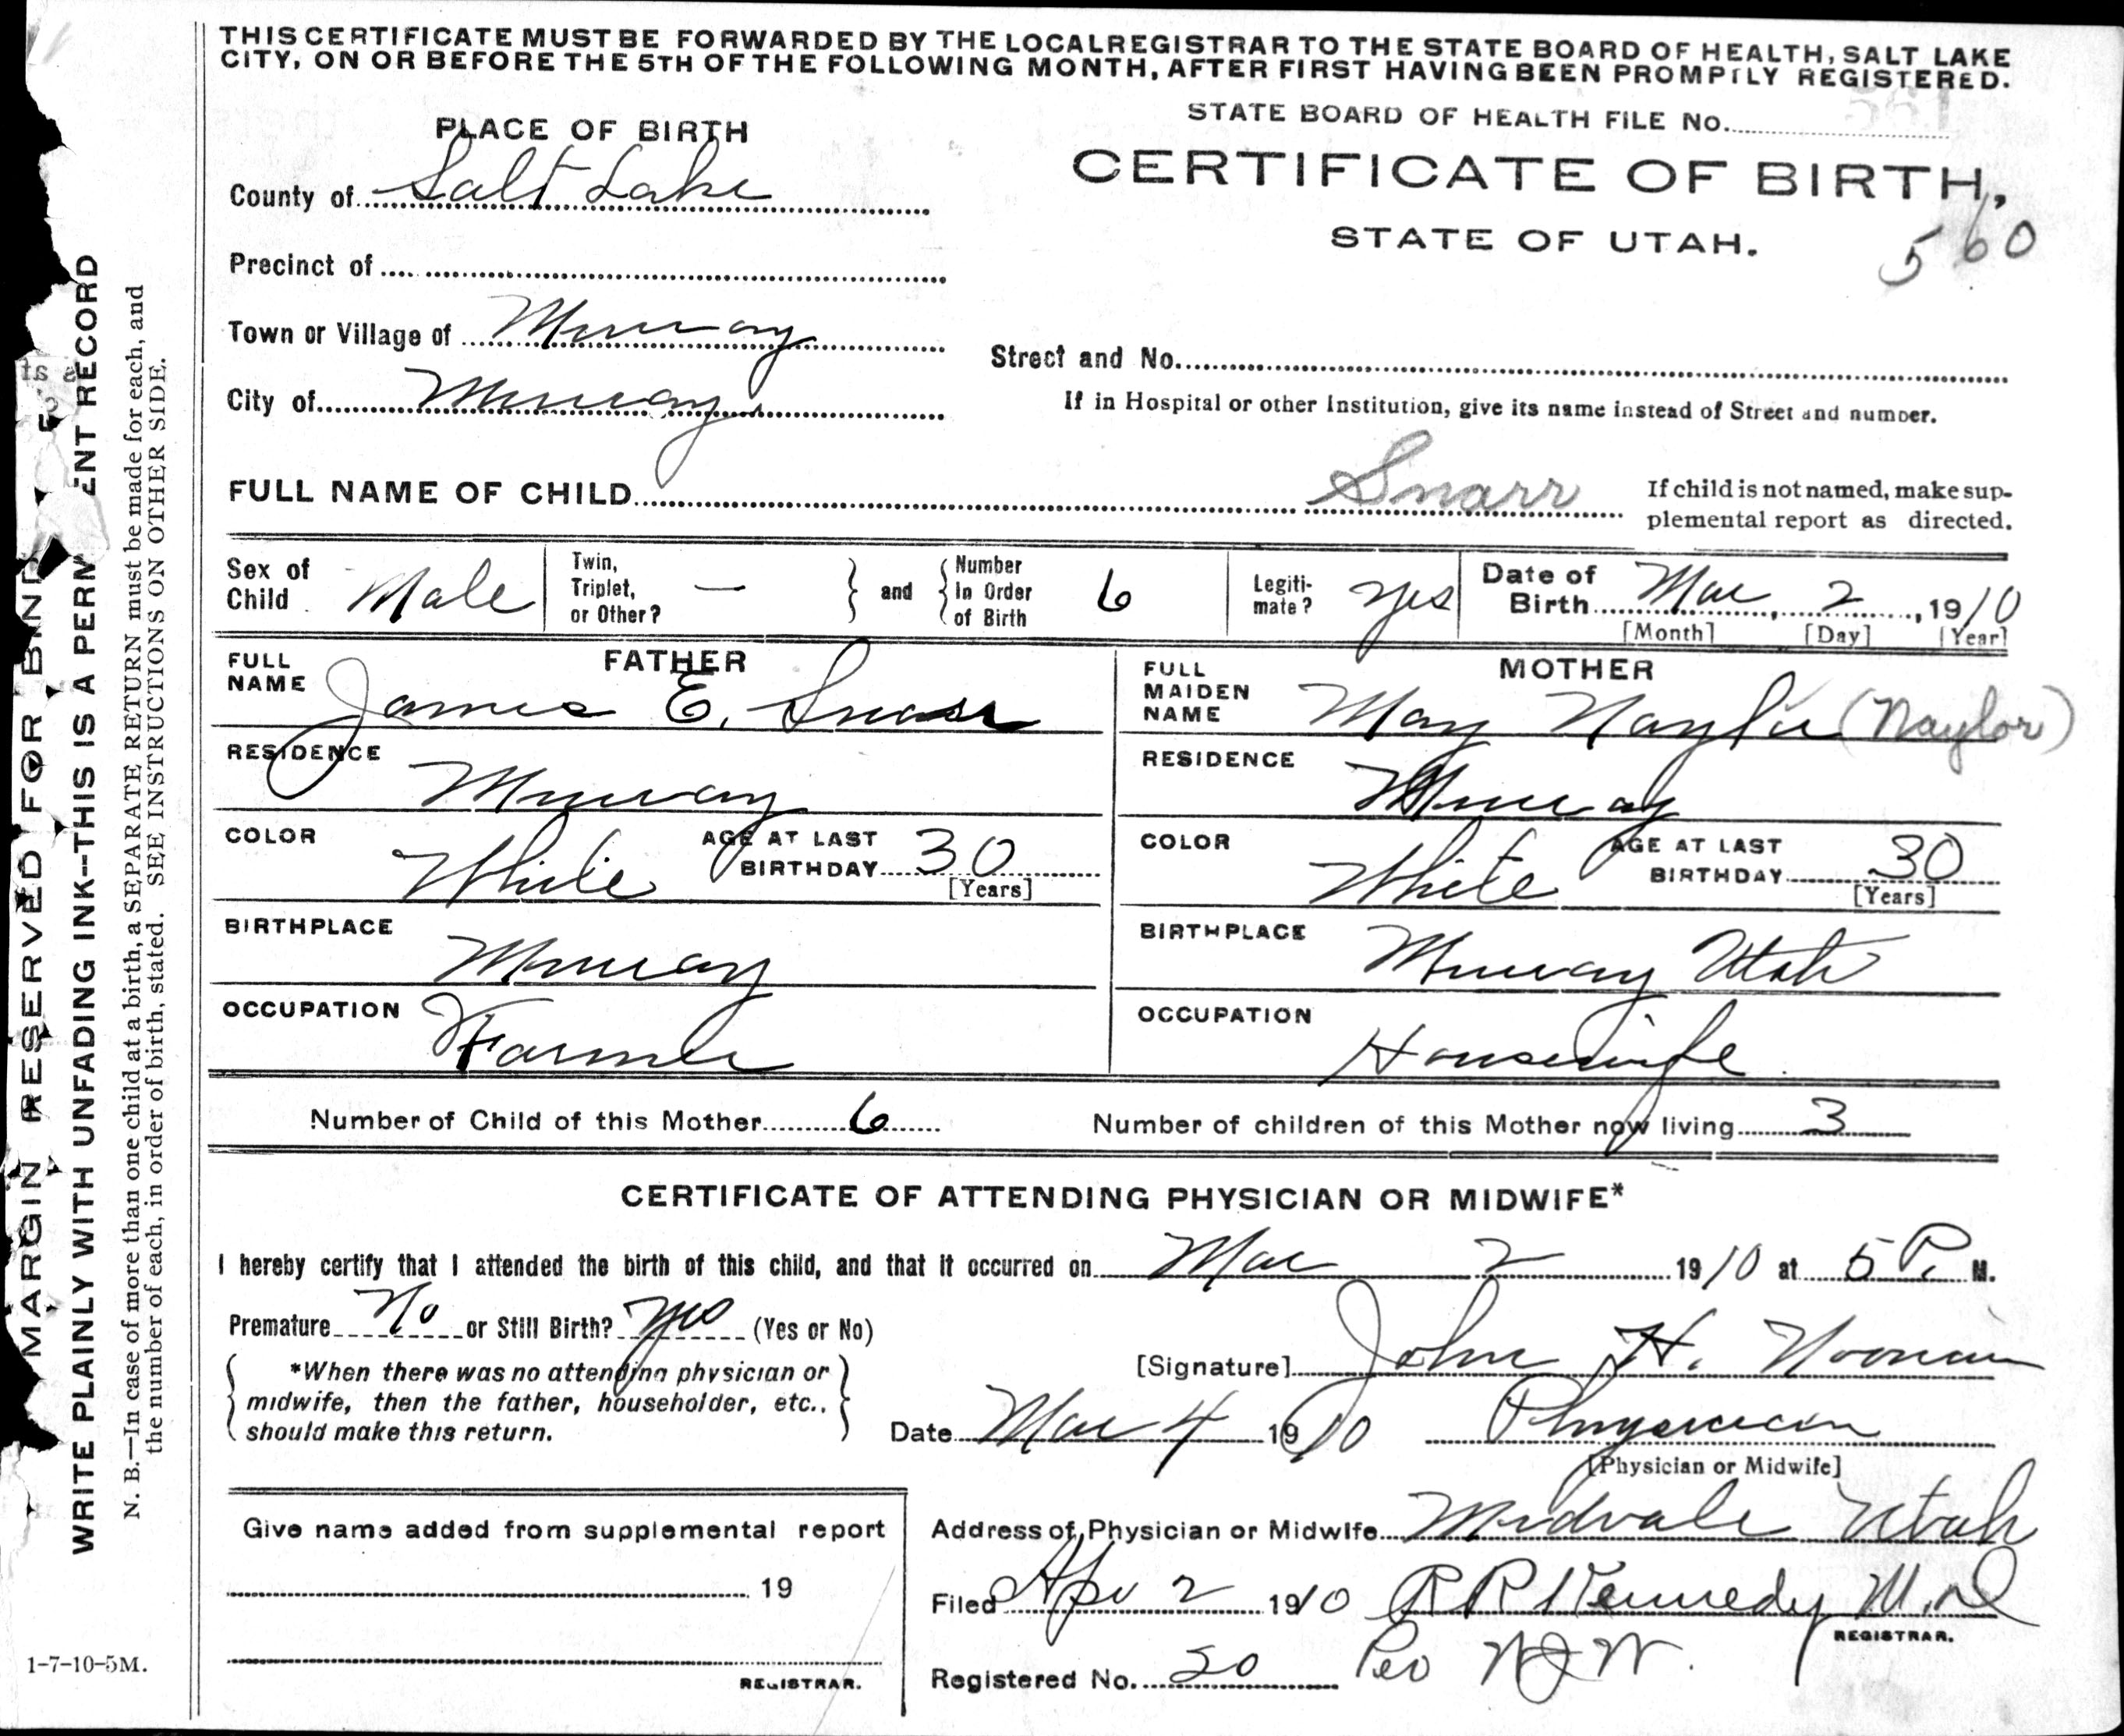 THIS CERTIFICATE MUST BE FORWARDED BY THE LOCAL REGISTRAR TO THE STATE BOARD OF HEALTH, SALT LAKE
CITY, ON OR BEFORE THE 5TH OF THE FOLLOWING MONTH, AFTER FIRST HAVING BEEN PROMPTLY REGISTERED.
STATE BOARD OF HEALTH FILE No.
PLACE OF BIRTH
CERTIFICATE OF BIRTH,
STATE OF UTAH.
560
County of Salt Lake
Precinct of
Town or Village of Murray
Street and No.
City of Murray
If in Hospital or other Institution, give its name instead of Street and number.
FULL NAME OF CHILD Snarr
If child is not named, make sup-
plemental report as directed.
Sex of Child Male
Twin, Triplet, or Other? —
and
Number In Order of Birth 6
Legiti-mate? Yes
Date of Birth Mar, 2, 1910
[Month] [Day] [Year]
FATHER
FULL NAME James E. Snarr
RESIDENCE Murray
COLOR White AGE AT LAST BIRTHDAY 30
[Years]
BIRTHPLACE Murray
OCCUPATION Farmer
MOTHER
FULL MAIDEN NAME May Naylor (Naylor)
RESIDENCE Murray
COLOR White AGE AT LAST BIRTHDAY 30
[Years]
BIRTHPLACE Murray Utah
OCCUPATION Housewife
Number of Child of this Mother 6 Number of children of this Mother now living 3
CERTIFICATE OF ATTENDING PHYSICIAN OR MIDWIFE*
I hereby certify that I attended the birth of this child, and that it occurred on Mar 2 1910 at 5 P. M.
Premature No or Still Birth? yes (Yes or No)
*When there was no attending physician or
midwife, then the father, householder, etc.,
should make this return.
[Signature] John H. Noonan
Date Mar 4 1910 Physician
[Physician or Midwife]
Give name added from supplemental report
19
REGISTRAR.
Address of Physician or Midwife Midvale Utah
Filed Apr 2 1910 R R Kennedy M.D
REGISTRAR.
Registered No. 50 Per W J W.
MARGIN RESERVED FOR BIND
WRITE PLAINLY WITH UNFADING INK--THIS IS A PERM ENT RECORD
N. B.—In case of more than one child at a birth, a SEPARATE RETURN must be made for each, and
the number of each, in order of birth, stated. SEE INSTRUCTIONS ON OTHER SIDE.
1-7-10-5M.